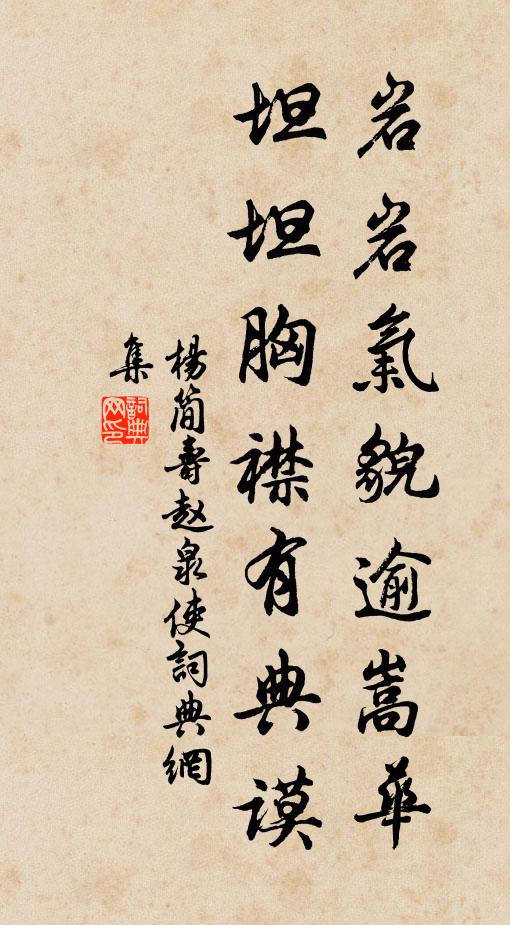 岩岩氣貌逾嵩華
坦坦胸襟有典謨
楊簡壽赵泉使詞典網
集
詞典网印